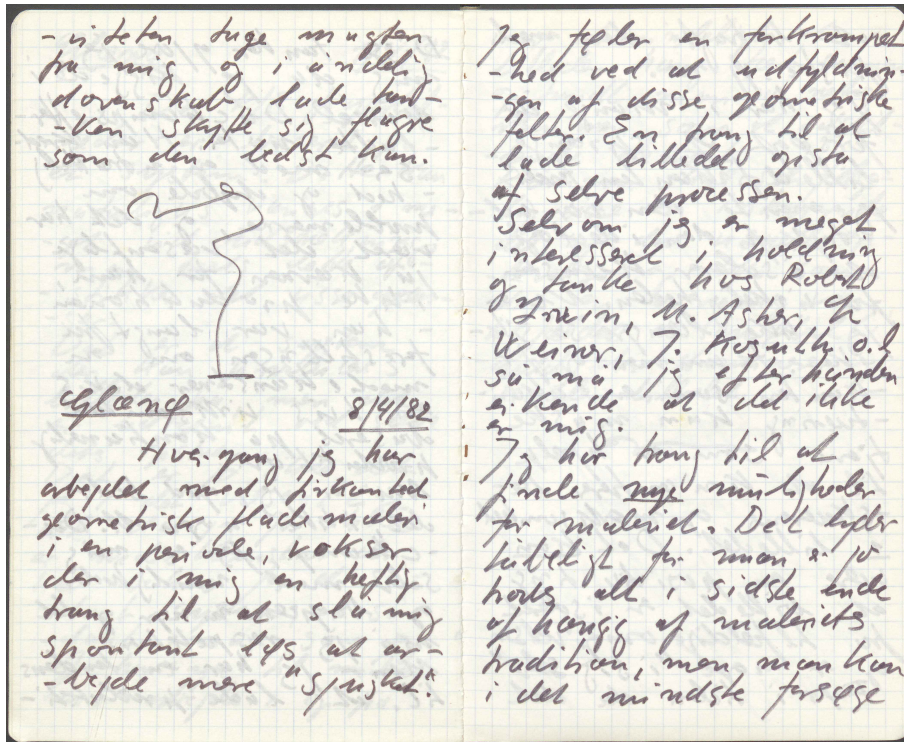 -viteten tage magten
fra mig og i åndelig
dovenskab lade tan-
-ken skytte sig flagre
som den bedst kan.
Glænø 8/4/82
Hver gang jeg har
arbejdet med firkantet
geometrisk flademaleri
i en periode, vokser
der i mig en heftig
trang til at slå mig
spontant løs at ar-
-bejde mere "sjusket".
Jeg føler en forkrampet
-hed ved at udfyldnin-
-gen af disse geometriske
felter. En trang til at
lade billedet opstå
af selve processen.
Selvom jeg er meget
interesseret i holdning
og tanke hos Robert
Irwin, M. Asher,
Weiner, J. Kosuth o.l
så må jeg efterhånden
erkende at det ikke
er mig.
Jeg har trang til at
finde nye muligheder
for maleriet. Det lyder
tåbeligt for man er jo
trods alt i sidste ende
afhængg af maleriets
tradition, men man kan
i det mindste forsøge